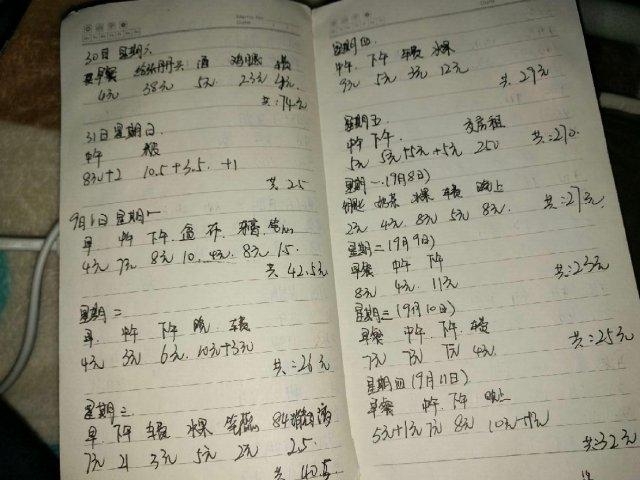 30日 星期六
早餐 酒 鸡腿
4元 38元 5元 23元 4元
共:74元
31日 星期日.
中午
8元+2 10.5+3.5. +1
共25
9月1日 星期一
早 中午 下午
4元 7元 8元 10. 4元. 8元 1.5.
共42.5元
星期二
早. 中午 下午 晚 车费
4元 3元 6元 10元+3元
共:26元
星期三
早. 下午 车费 水果 84消毒液
7元 21 3元 5元 2元 2.5.
共40.5
星期四
中午. 下午 车费 水果
9元 5元 3元 12元
共:29元
星期五.
中午 下午. 交房租
5元 5元+5元+5元 250
共:270.
星期一.(9月8日)
奶茶 水果 车费 晚上
2元 4元. 8元 5元 8元.
共:27元
星期二(9月9日)
早餐 中午 下午
8元 4元. 11元
共:23元
星期三(9月10日)
早餐 中午. 下午. 车费
7元 7元 7元 4元.
共:25元
星期四(9月11日)
早餐 中午. 下午 晚上
5元+1元 7元 8元 10元+1元
共:32元